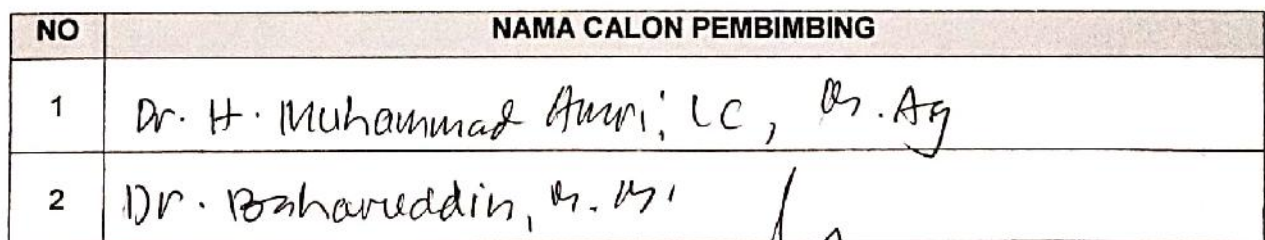 NO NAMA CALON PEMBIMBING
1 Dr. H. Muhammad Amri, LC, M.Ag
2 Dr. Baharuddin, M.